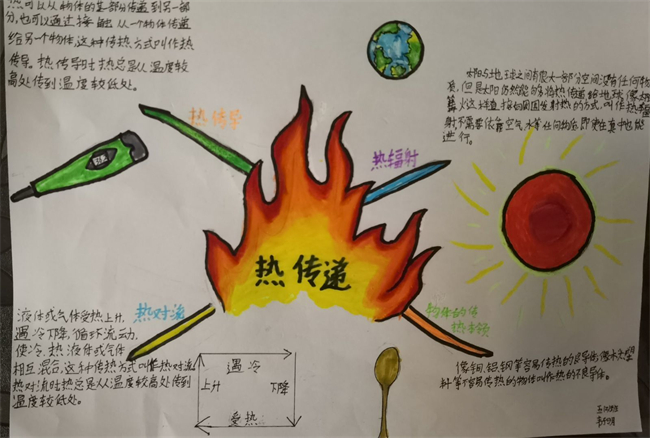 热可以从物体的某部分传到另一部
分,也可以通过接触从一个物体传递
给另一个物体,这种传热方式叫作热
传导。热传导时热总是从温度较
高处传到温度较低处。
太阳与地球之间有很大一部分空间没有任何物
质,但是太阳仍然能够将热传递给地球,像太阳
火这样直接向周围发射热的方式,叫作热辐
射,不需要依靠空气、水等任何物质,即使在真中也能
进行。
热传导
热辐射
热传递
热对流
物体的传
热本领
液体或气体受热上升,
遇冷下降,循环流动,
使冷、热液体或气体
相互混合,这种传热方式叫作热对流。
热对流时热总是从温度较高处传到
温度较低处。
遇冷
上升
下降
受热
像铜、铝、钢等容易传热的是导体,像木头、塑
料等不容易传热的物体叫作热的不良导体。